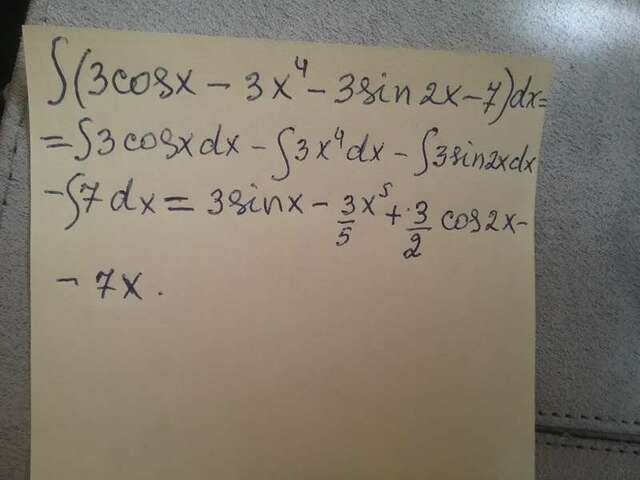 ∫(3cosx − 3x⁴ − 3sin2x − 7)dx =
= ∫3cosxdx − ∫3x⁴dx − ∫3sin2xdx
− ∫7dx = 3sinx − 3/5 x⁵ + 3/2 cos2x −
− 7x.